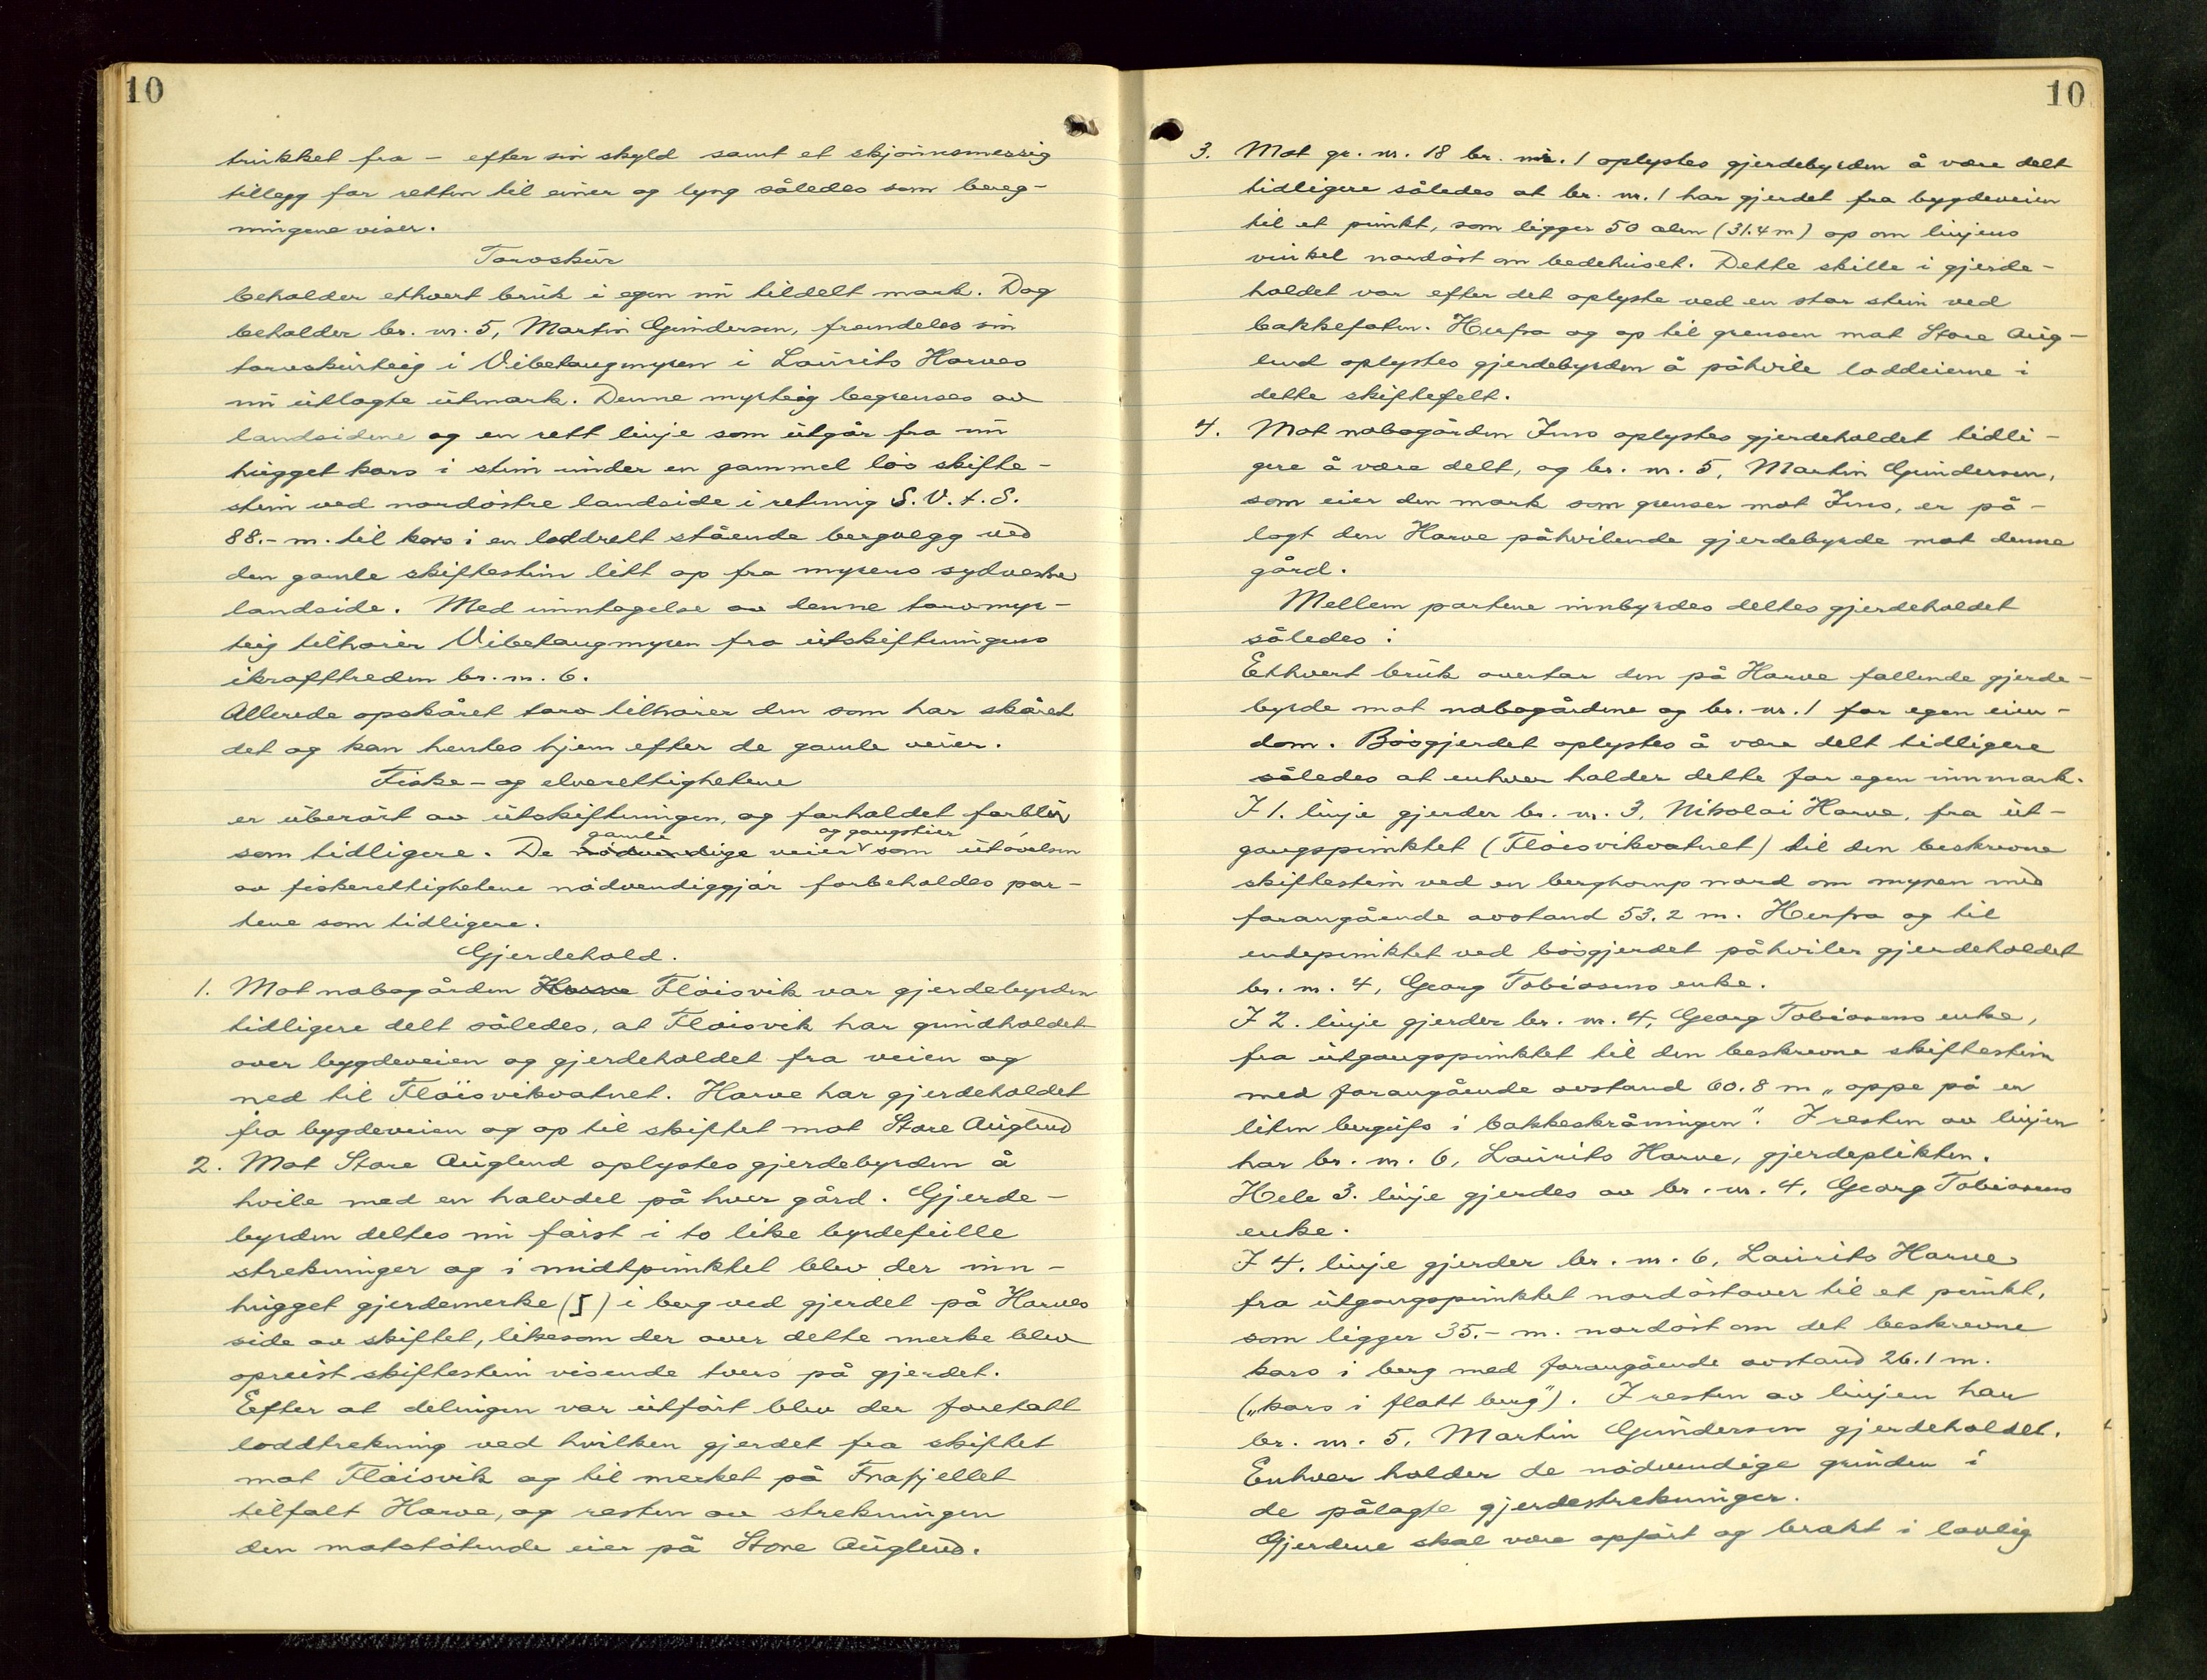 10
trukket fra - efter sin skyld samt et skjønnsmessig
tillegg for retten til einer og lyng således som bereg-
ningene viser.
Torvskur
beholder ethvert bruk i egen nu tildelt mark. Dog
beholder br. nr. 5, Martin Gundersen, fremdeles sin
torvskurteig i Vibetaugmyren i Laurits Harves
nu utlagte utmark. Denne myrteig begrenses av
landsidene og en rett linje som utgår fra nu
hugget kors i sten under en gammel løs skifte-
sten ved nordøstre landside i retning S.V.t.S.
88.- m. til kors i en loddrett stående bergvegg ved
den gamle skiftesten litt op fra myrens sydvestre
landside. Med unntagelse av denne torvmyr-
teig tilhører Vibetaugmyren fra utskiftningens
ikrafttreden br. nr. 6.
Allerede opskåret torv tilhører den som har skåret
det og kan hentes hjem efter de gamle veier.
Fiske- og elverettighetene
er uberørt av utskiftningen, og forholdet forblir
gamle og gangstier
som tidligere. De nødvendige veier som utøvelsen
av fiskerettighetene nødvendiggjør forbeholdes par-
tene som tidligere.
Gjerdehold.
1. Mot nabogården Harve Fløisvik var gjerdebyrden
tidligere delt således, at Fløisvik har grindholdet
over bygdeveien og gjerdeholdet fra veien og
ned til Fløisvikvatnet. Harve har gjerdeholdet
fra bygdeveien og op til skiftet mot Store Auglend
2. Mot Store Auglend oplystes gjerdebyrden å
hvile med en halvdel på hver gård. Gjerde-
byrden deltes nu først i to like byrdefulle
strekninger og i midtpunktet blev der inn-
hugget gjerdemerke (I) i berg ved gjerdet på Harves
side av skiftet, likesom der over dette merke blev
opreist skiftesten visende tvers på gjerdet.
Efter at delingen var utført blev der foretatt
loddtrekning ved hvilken gjerdet fra skiftet
mot Fløisvik og til merket på Fnafjellet
tilfalt Harve, og resten av strekningen
den motstøtende eier på Store Auglend.
10
3. Mot gr. nr. 18 br. nr. 1 oplystes gjerdebyrden å være delt
tidligere således at br. nr. 1 har gjerdet fra bygdeveien
til et punkt, som ligger 50 alen (31.4 m) op om linjens
vinkel nordøst om bedehuset. Dette skille i gjerde-
holdet var efter det oplyste ved en stor sten ved
bakkefoten. Herfra og op til grensen mot Store Aug-
lend oplystes gjerdebyrden å påhvile loddeierne i
dette skiftefelt.
4. Mot nabogården Funs oplystes gjerdeholdet tidli-
gere å være delt, og br. nr. 5, Martin Gundersen,
som eier den mark som grenser mot Funs, er på-
lagt den Harve påhvilende gjerdebyrde mot denne
gård.
Mellem partene innbyrdes deltes gjerdeholdet
således:
Ethvert bruk overtar den på Harve fallende gjerde-
byrde mot nabogårdene og br. nr. 1 for egen eien-
dom. Bøsgjerdet oplystes å være delt tidligere
således at enhver holder dette for egen innmark.
I 1. linje gjerder br. nr. 3, Nikolai Harve, fra ut-
gangspunktet (Fløisvikvatnet) til den beskrevne
skiftesten ved en berghomp nord om myren med
forangående avstand 53.2 m. Herfra og til
endepunktet ved bøsgjerdet påhviler gjerdeholdet
br. nr. 4, Georg Tobiasens enke.
I 2. linje gjerder br. nr. 4, Georg Tobiasens enke,
fra utgangspunktet til den beskrevne skiftesten
med forangående avstand 60.8 m „oppe på en
liten bergufs i bakkeskråningen". I resten av linjen
har br. nr. 6, Laurits Harve, gjerdeplikten.
Hele 3. linje gjerdes av br. nr. 4, Georg Tobiasens
enke.
I 4. linje gjerder br. nr. 6, Laurits Harve
fra utgangspunktet nordøstover til et punkt,
som ligger 35.- m. nordøst om det beskrevne
kors i berg med forangående avstand 26.1 m.
(„kors i flatt berg"). I resten av linjen har
br. nr. 5, Martin Gundersen gjerdeholdet.
Enhver holder de nødvendige grinder i
de pålagte gjerdestrekninger.
Gjerdene skal være opført og brakt i lovlig